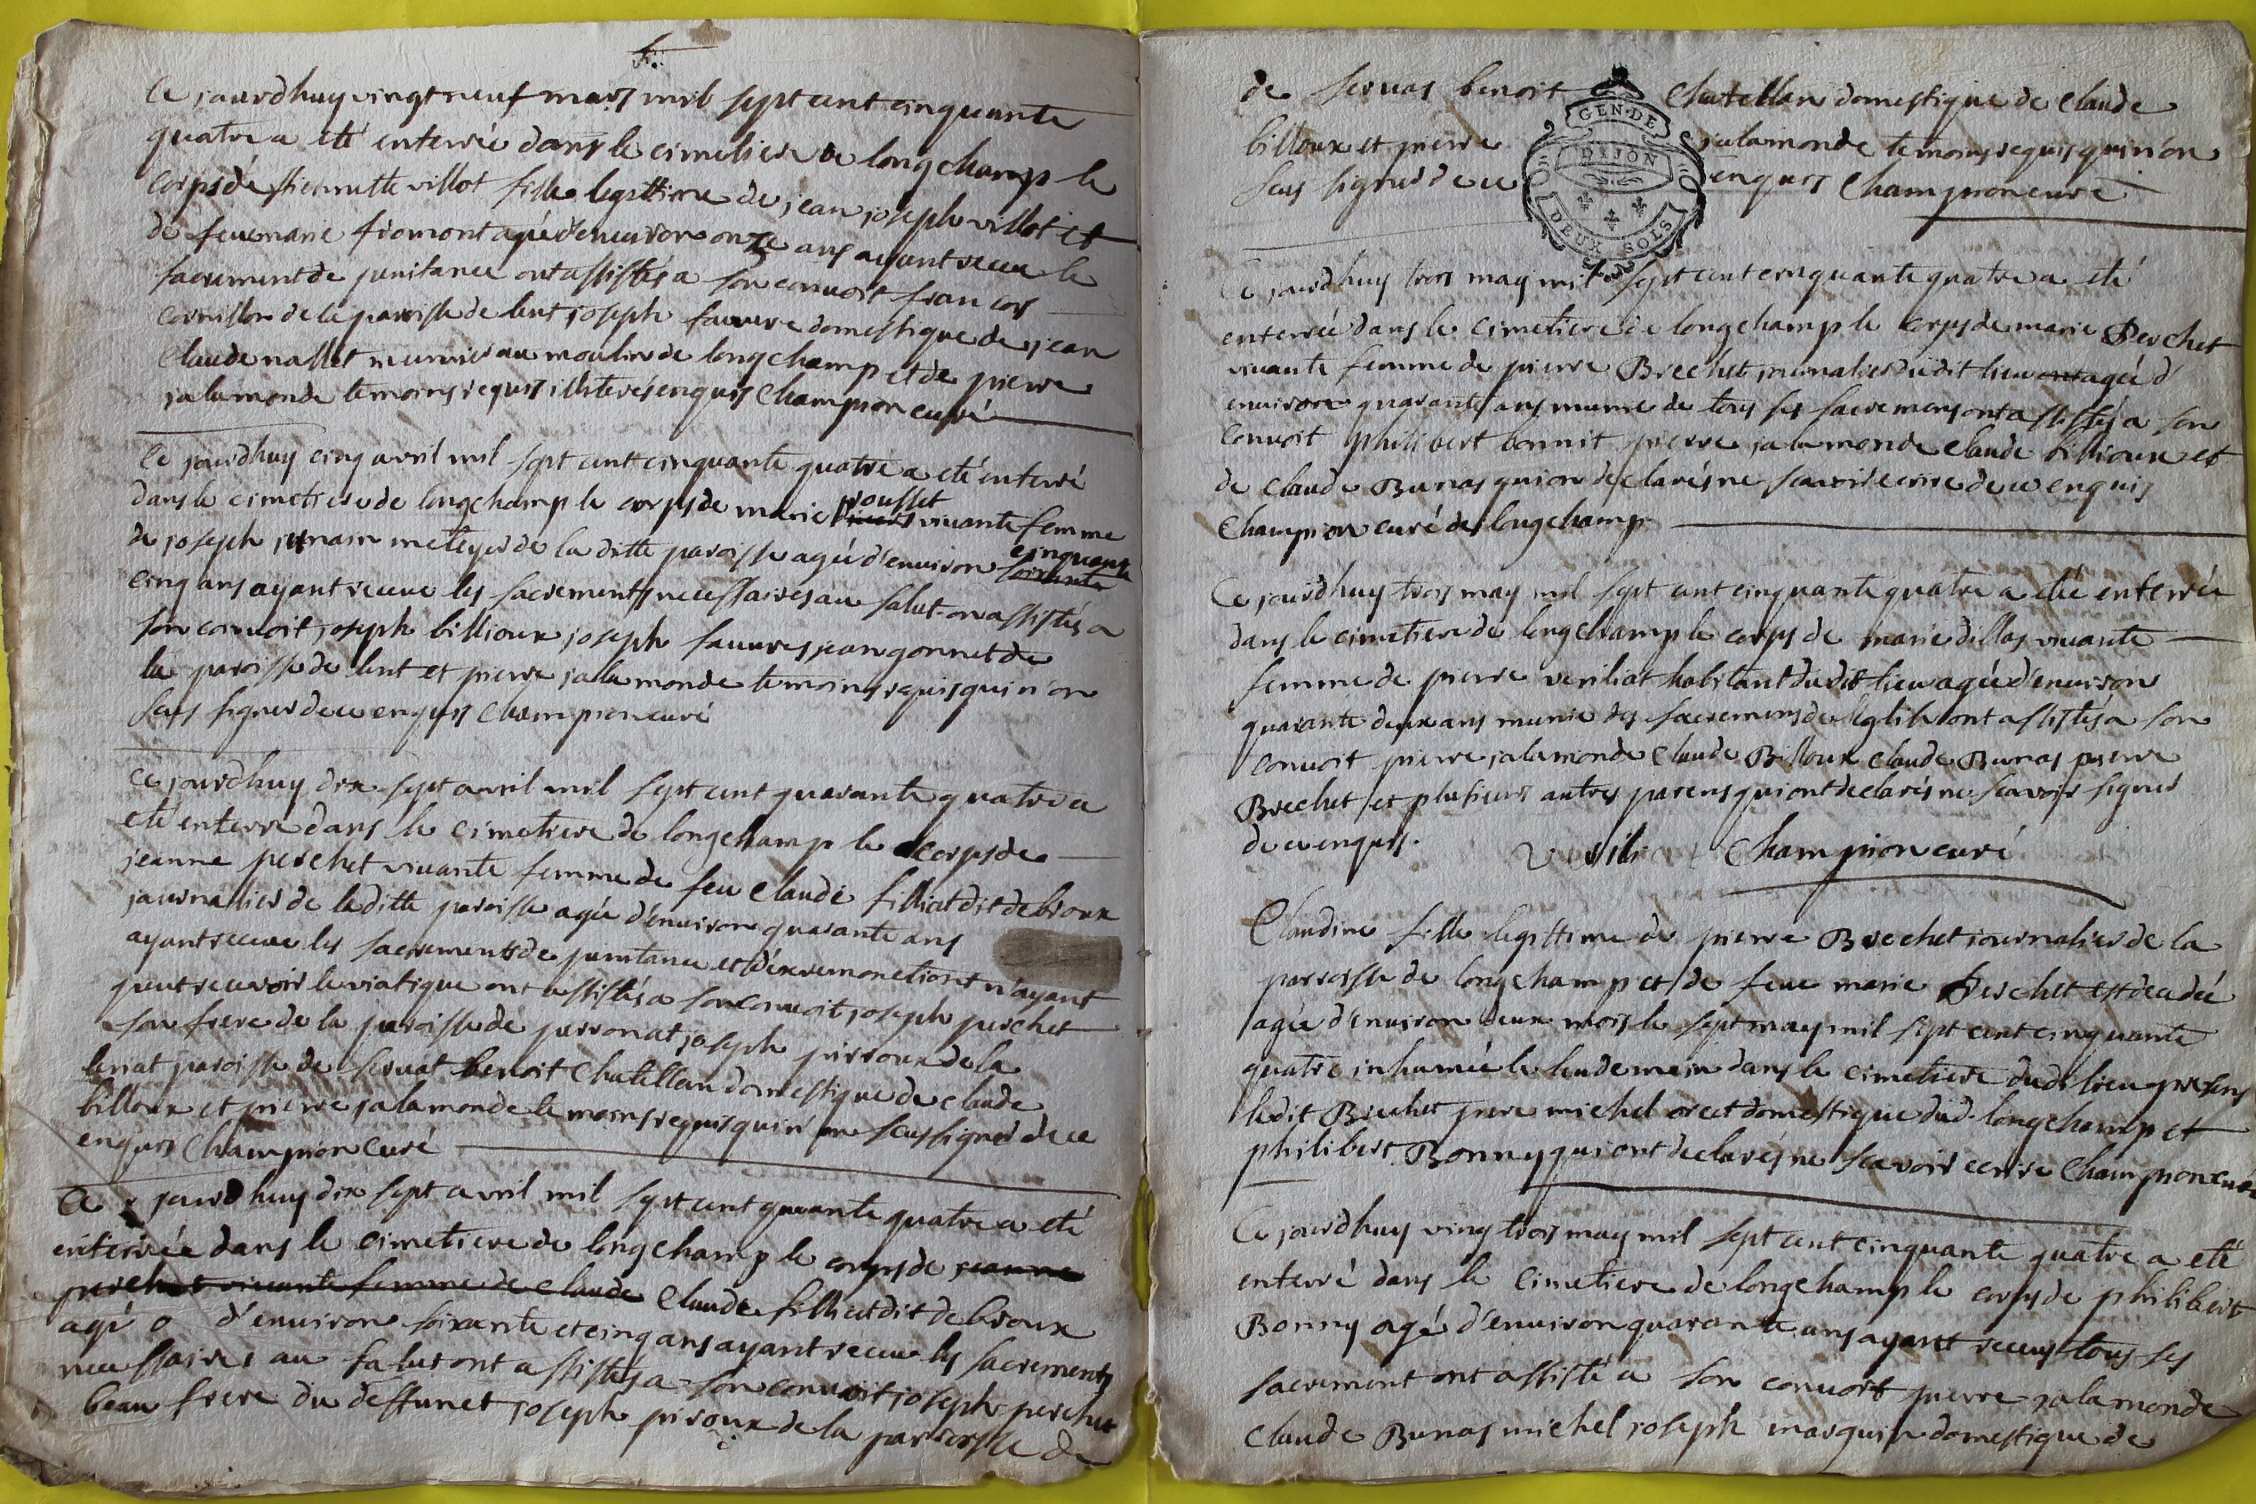 Ce jourdhuy vingt neuf mars mil sept cent cinquante
quatre a eté enterrée dans le cimetiere de longchamp le
corps de villot fille legittime de jean joseph villot et
de feue marie fromont agé d'environ onze ans ayant receu le
sacrement de penitance ont assistés a son convoit francois
cornillon de la paroisse de lent joseph favure domestique de jean
Claude nallet meunier au moulin de longchamp et de pierre
jalamonde temoins requis enquis Champion curé
Ce jourdhuy cinq avril mil sept cent cinquante quatre a eté enterré
dans le cimetiere de longchamp le corps de marie pousset vivante femme
de joseph meteyer de la ditte paroisse agée d'environ cinquante
cinq ans ayant receue les sacrements necessaires au salut on assistés a
son convoit joseph billioux joseph favure jean gonnet de
la paroisse de lent et pierre jalamonde temoins requis qui n'on
seus signer de ce enquis Champion curé
Ce jourdhuy dix sept avril mil sept cent quarante quatre a
eté enterré dans le cimetiere de longchamp le corps de
jeanne perchet vivante femme de feu Claude filliat dit debroux
journalier de la ditte paroisse agée d'environ quarante ans
ayant receue les sacrements de penitance et d'extreme onction n'ayant
peut recevoir le viatique ont assistés a son convoit joseph perchet
son frere de la paroisse de perronat joseph pirroux de la
paroisse de servat benoit Chatellan domestique de claude
billoux et pierre jalamonde temoins requis qui n'on seus signer de ce
enquis Champion curé
Ce jourdhuy dix sept avril mil sept cent quarante quatre a eté
enterrée dans le cimetiere de longchamp le corps de jeanne
perchet vivante femme de claude Claude filliat dit debroux
agé d'environ soixante et cinq ans ayant receue les sacrements
necessaires au salut ont assistés a son convoit joseph perchet
beau frere du deffunct joseph piroux de la parroisse de
de servas benoit Chatellan domestique de Claude
billoux et pierre jalamonde temoins requis qui n'on
seus signer de ce enquis Champion curé
GEN·DE
DIJON
DEUX SOLS
Ce jourdhuy trois may mil sept cent cinquante quatre a eté
enterrée dans le cimetiere de longchamp le corps de marie Perchet
vivante femme de pierre Brechet journalier dudit lieu agée d'
environ quarante ans munie de tous ses sacremens ont assistés a son
convoit philibert bonnit pierre jalamonde Claude billioux et
de Claude Bunas qui on declarés ne scavoir ecrire de ce enquis
Champion curé de longchamp
Ce jourdhuy trois may mil sept cent cinquante quatre a eté enterrée
dans le cimetiere de longchamp le corps de marie dillas vivante
femme de pierre veriliat habitant dudit lieu agée d'environ
quarante deux ans munie des sacremens de l'eglise ont assistés a son
convoit pierre jalamonde Claude Billoux Claude Bunas pierre
Brechet et plusieurs autres parens qui ont declarés ne scavoir signer
de ce enquis. Champion curé
Claudine fille legittime de pierre Brechet journalier de la
parroisse de longchamp et de feue marie Perchet est decedée
agée d'environ deux mois le sept may mil sept cent cinquante
quatre inhumée le lendemain dans le cimetiere dudt lieu presens
ledit Brechet pere michel domestique dud. longchamp et
philibert Bonny qui ont declarés ne scavoir ecrire Champion curé
Ce jourdhuy vingt trois may mil sept cent cinquante quatre a eté
enterré dans le cimetiere de longchamp le corps de philibert
Bonny agé d'environ quarante ans ayant receus tous ses
sacrement ont assisté a son convoit pierre jalamonde
Claude Bunas michel joseph marguin domestique de